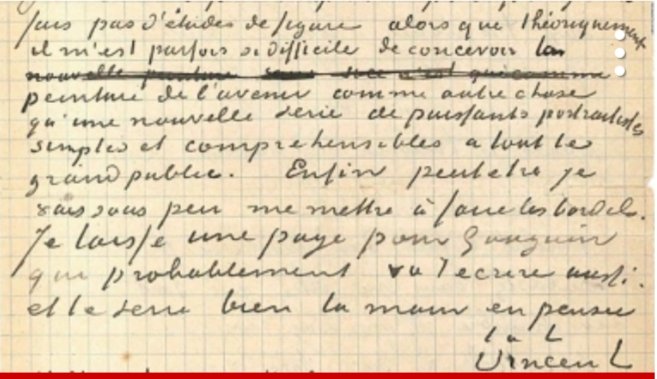 fais pas d'études de figure alors que théoriquement
il m'est parfois si difficile de concevoir la
nouvelle peinture
peinture de l'avenir comme autre chose
qu'une nouvelle serie de puissants portraitistes
simples et comprehensibles a tout le
grand public. Enfin peutetre je
vais sous peu me mettre à faire les bordels.
Je laisse une page pour Gauguin
qui probablement va t'ecrire aussi.
et te serre bien la main en pensée
t. à t.
Vincent